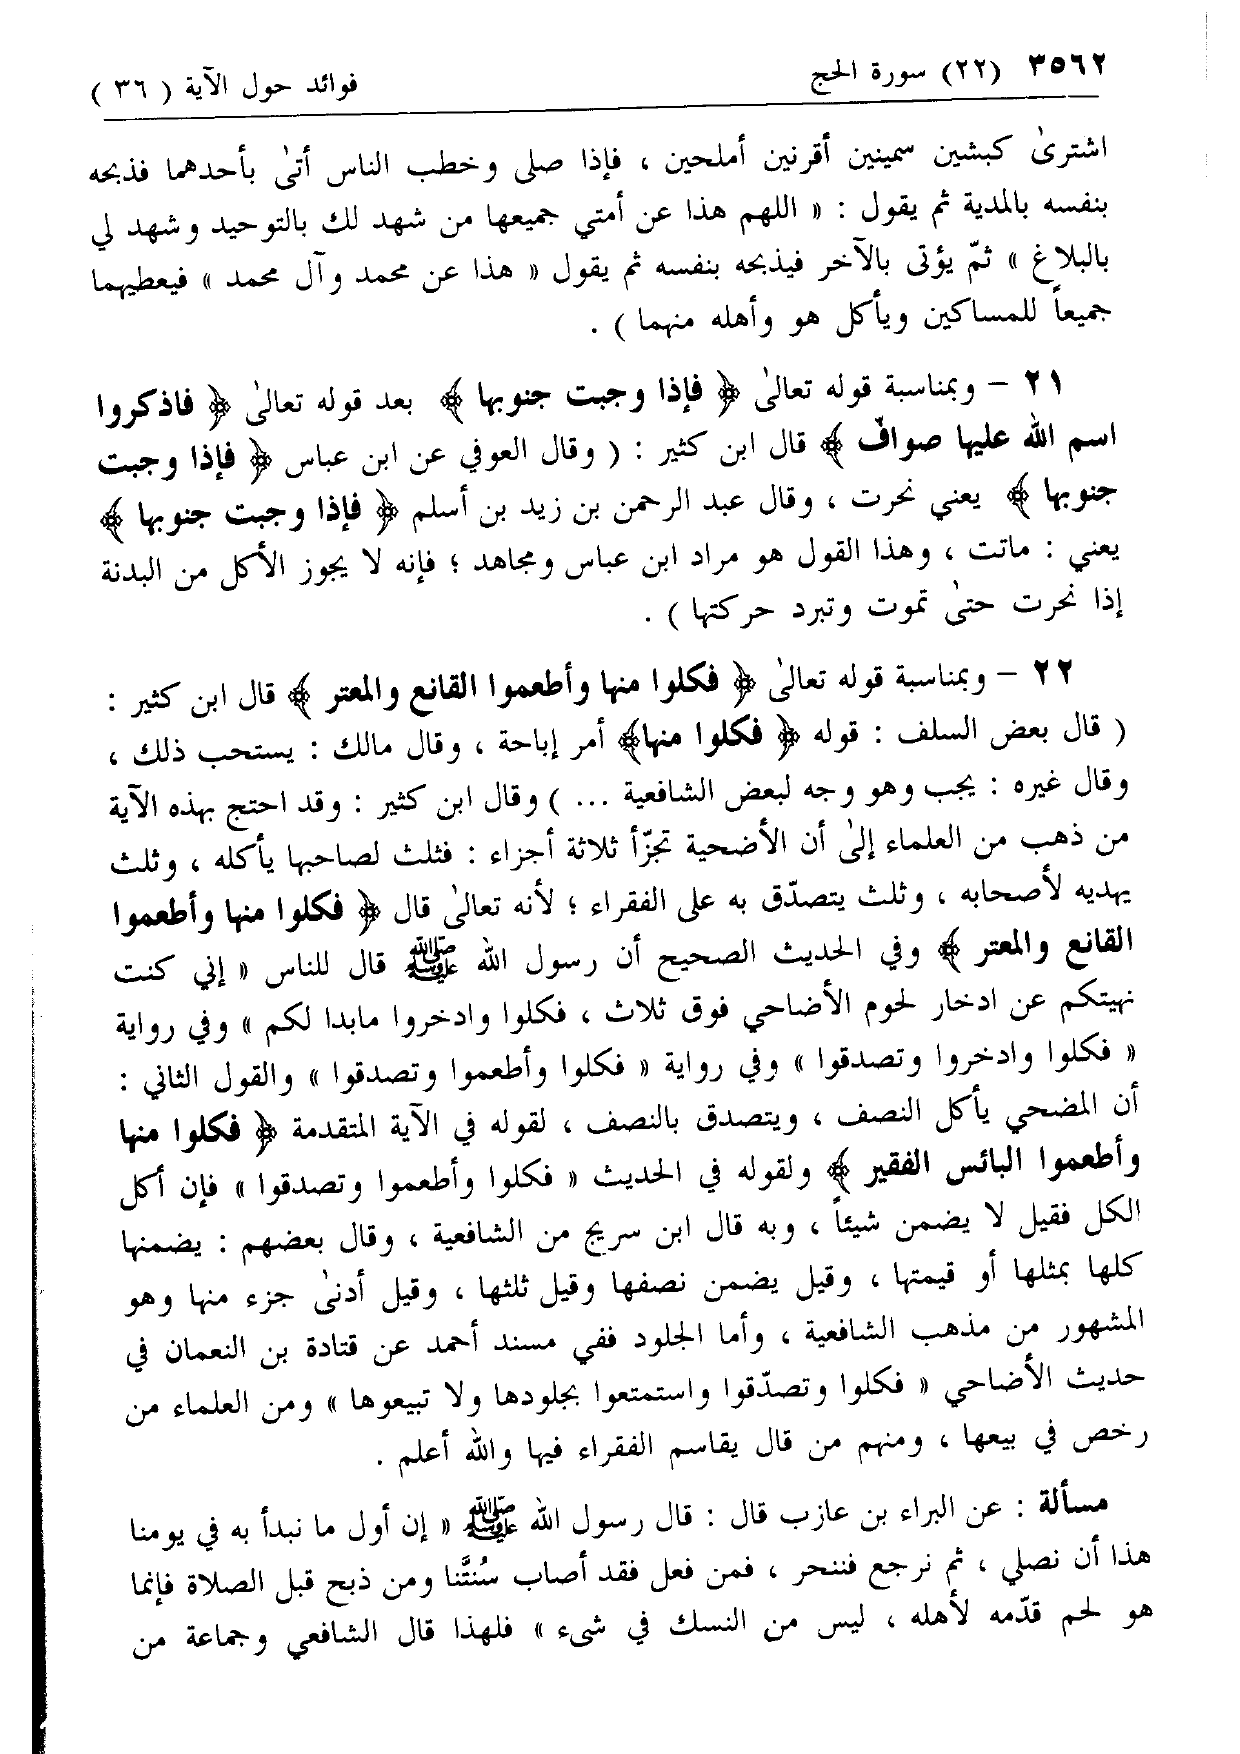 ٣٥٦٢ (٢٢) سورة الحج فوائد حول الآية ( ٣٦ )
اشترىٰ كبشين سمينين أقرنين أملحين ، فإذا صلى وخطب الناس أتىٰ بأحدهما فذبحه
بنفسه بالمدية ثم يقول : « اللهم هذا عن أمتي جميعها من شهد لك بالتوحيد وشهد لي
بالبلاغ » ثمّ يؤتى بالآخر فيذبحه بنفسه ثم يقول « هذا عن محمد وآل محمد » فيعطيهما
جميعاً للمساكين ويأكل هو وأهله منهما ) .
٢١ - وبمناسبة قوله تعالىٰ ﴿ فإذا وجبت جنوبها ﴾ بعد قوله تعالىٰ ﴿ فاذكروا
اسم الله عليها صوافّ ﴾ قال ابن كثير : ( وقال العوفي عن ابن عباس ﴿ فإذا وجبت
جنوبها ﴾ يعني نحرت ، وقال عبد الرحمن بن زيد بن أسلم ﴿ فإذا وجبت جنوبها ﴾
يعني : ماتت ، وهذا القول هو مراد ابن عباس ومجاهد ؛ فإنه لا يجوز الأكل من البدنة
إذا نحرت حتىٰ تموت وتبرد حركتها ) .
٢٢ - وبمناسبة قوله تعالىٰ ﴿ فكلوا منها وأطعموا القانع والمعتر ﴾ قال ابن كثير :
( قال بعض السلف : قوله ﴿ فكلوا منها﴾ أمر إباحة ، وقال مالك : يستحب ذلك ،
وقال غيره : يجب وهو وجه لبعض الشافعية ... ) وقال ابن كثير : وقد احتج بهذه الآية
من ذهب من العلماء إلىٰ أن الأضحية تجزّأ ثلاثة أجزاء : فثلث لصاحبها يأكله ، وثلث
يهديه لأصحابه ، وثلث يتصدّق به على الفقراء ؛ لأنه تعالىٰ قال ﴿ فكلوا منها وأطعموا
القانع والمعتر ﴾ وفي الحديث الصحيح أن رسول الله ﷺ قال للناس « إني كنت
نهيتكم عن ادخار لحوم الأضاحي فوق ثلاث ، فكلوا وادخروا مابدا لكم » وفي رواية
« فكلوا وادخروا وتصدقوا » وفي رواية « فكلوا وأطعموا وتصدقوا » والقول الثاني :
أن المضحي يأكل النصف ، ويتصدق بالنصف ، لقوله في الآية المتقدمة ﴿ فكلوا منها
وأطعموا البائس الفقير ﴾ ولقوله في الحديث « فكلوا وأطعموا وتصدقوا » فإن أكل
الكل فقيل لا يضمن شيئاً ، وبه قال ابن سريج من الشافعية ، وقال بعضهم : يضمنها
كلها بمثلها أو قيمتها ، وقيل يضمن نصفها وقيل ثلثها ، وقيل أدنىٰ جزء منها وهو
المشهور من مذهب الشافعية ، وأما الجلود ففي مسند أحمد عن قتادة بن النعمان في
حديث الأضاحي « فكلوا وتصدّقوا واستمتعوا بجلودها ولا تبيعوها » ومن العلماء من
رخص في بيعها ، ومنهم من قال يقاسم الفقراء فيها والله أعلم .
مسألة : عن البراء بن عازب قال : قال رسول الله ﷺ « إن أول ما نبدأ به في يومنا
هذا أن نصلي ، ثم نرجع فننحر ، فمن فعل فقد أصاب سُنتَّنا ومن ذبح قبل الصلاة فإنما
هو لحم قدّمه لأهله ، ليس من النسك في شىء » فلهذا قال الشافعي وجماعة من